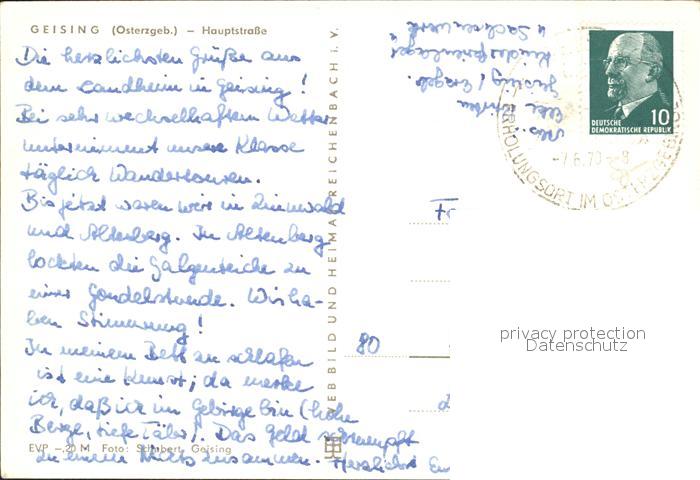 GEISING (Osterzgeb.) – Hauptstraße
Die herzlichsten Grüße aus
dem Landheim in Geising!
Bei sehr wechselhaftem Wetter
unternimmt unsere Klasse
täglich Wandertouren.
Bis jetzt waren wir in Zinnwald
und Altenberg. In Altenberg
lockten die Galgenteiche zu
einer Gondelstunde. Wir ha-
ben Stimmung!
In meinem Bett zu schlafen
ist eine Kunst; da merke
ich, daß ich im Gebirge bin (hohe
Berge, tiefe Täler). Das Geld schrumpft
zu einem Nichts zusammen. Herzlichst
EVP –,20 M Foto: Schubert, Geising
VEB BILD UND HEIMAT REICHENBACH i. V.
Abs.
Geising / Erzgeb.
Kinderferienlager
" Sachsenwerk "
DEUTSCHE
DEMOKRATISCHE REPUBLIK
10
ERHOLUNGSORT IM OSTERZGEBIRGE
-7.6.70-8
Fr
80
privacy protection
Datenschutz